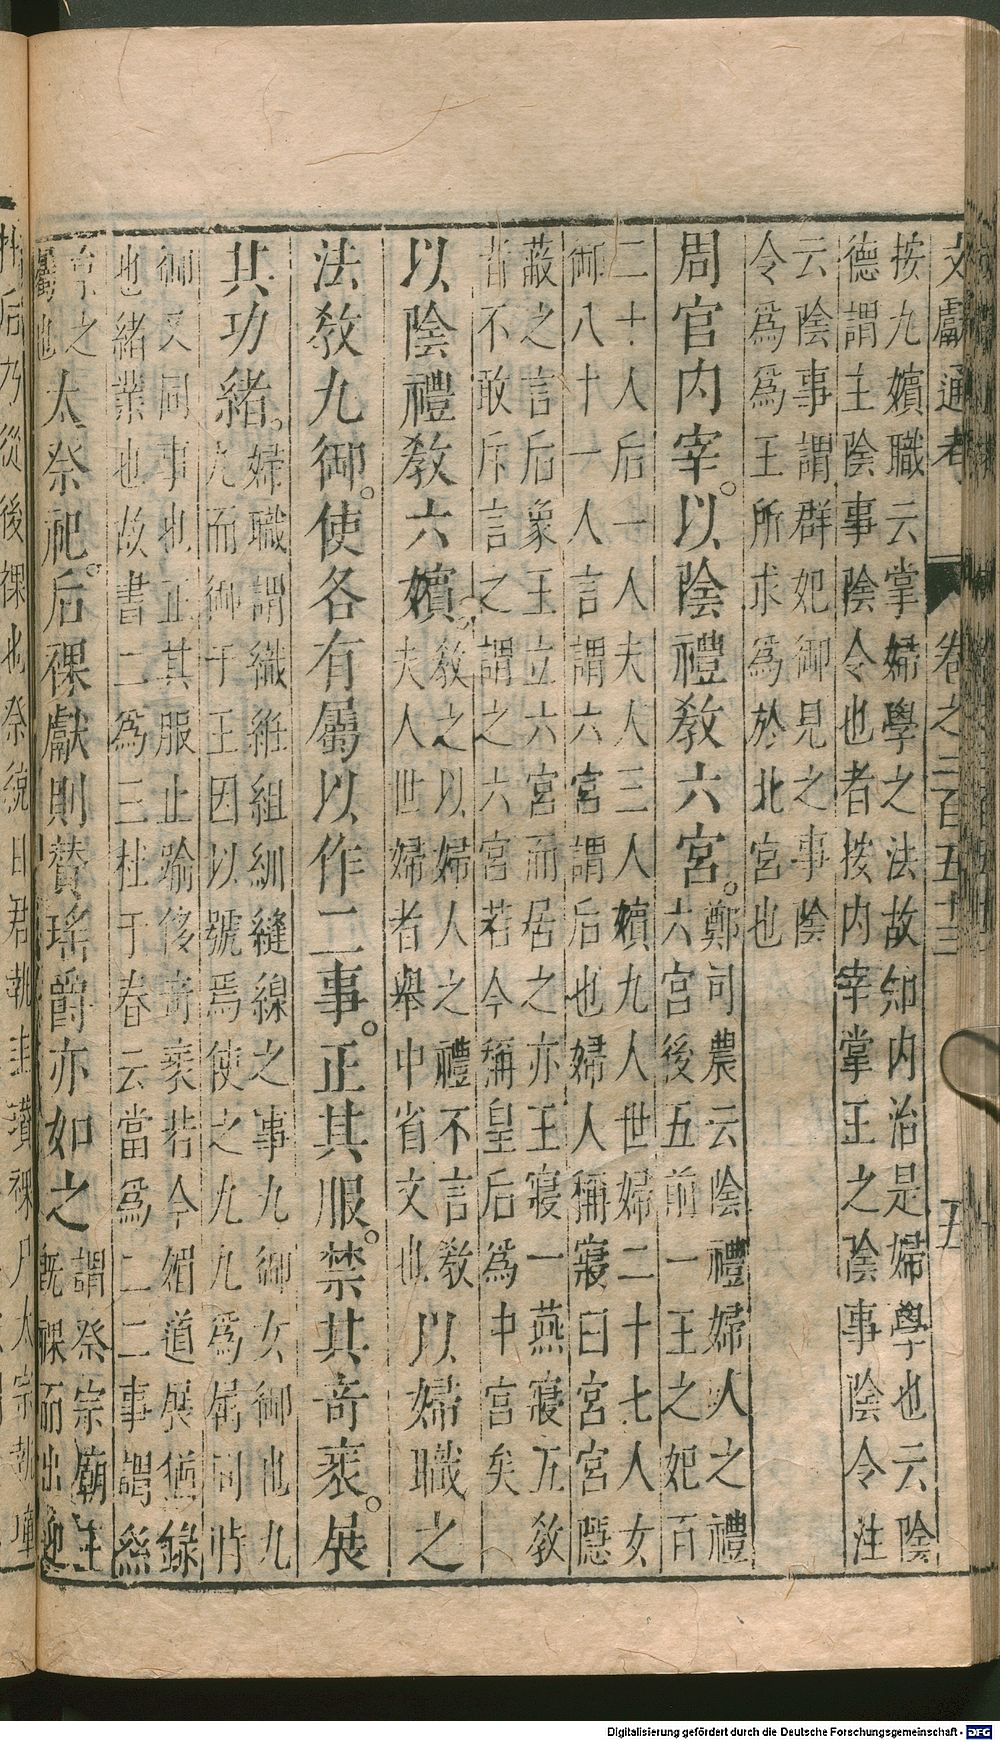 文獻通考 卷之二百五十三 五
按九嬪職云掌婦學之法故知内治是婦學也云陰
德謂主陰事陰令也者按内宰掌王之陰事陰令注
云陰事謂群妃御見之事陰
令爲爲王所求爲於北宮也
周官内宰。以陰禮教六宮。
鄭司農云陰禮婦人之禮
六宮後五前一王之妃百
二十人后一人夫人三人嬪九人世婦二十七人女
御八十一人言謂六宮謂后也婦人稱寢曰宮宮隱
蔽之言后象王立六宮而居之亦王寢一燕寢五教
者不敢斥言之謂之六宮若今稱皇后爲中宮矣
以陰禮教六嬪。
教之以婦人之禮不言教
夫人世婦者舉中省文也
以婦職之
法教九御。使各有屬以作二事。正其服。禁其奇衺。展
其功緒。
婦職謂織絍組紃縫線之事九御女御也九
九而御于王因以號焉使之九九爲屬同時
御又同事也正其服止踰侈奇衺若今媚道展猶錄
也緒業也故書二爲三杜子春云當爲二二事謂絲
之
也
太祭祀。后祼獻則贊瑤爵亦如之
謂祭宗廟王
既祼而出迎
牲后乃從後祼也祭統曰君執圭瓚祼尸太宗執璋
Digitalisierung gefördert durch die Deutsche Forschungsgemeinschaft - DFG